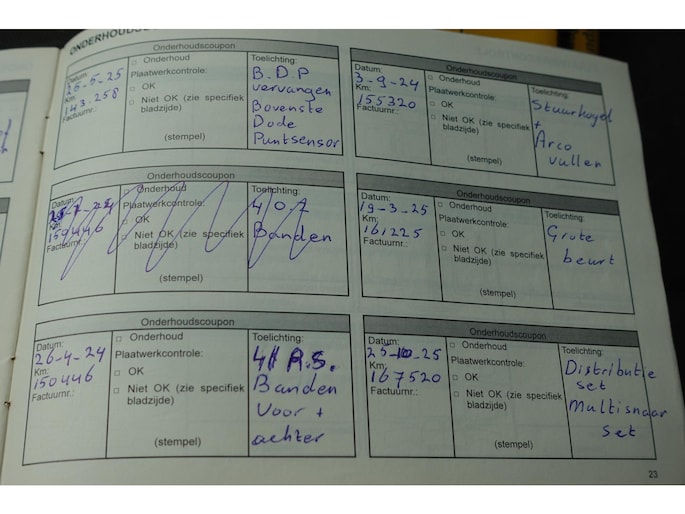 Onderhoudscoupon
Datum:
26-5-25
Km:
143.258
Factuurnr.:
□ Onderhoud
Plaatwerkcontrole:
□ OK
□ Niet OK (zie specifiek
bladzijde)
(stempel)
Toelichting:
B.D.P
vervangen
Bovenste
Dode
Puntsensor
Onderhoudscoupon
Datum:
3-9-24
Km:
155320
Factuurnr.:
□ Onderhoud
Plaatwerkcontrole:
□ OK
□ Niet OK (zie specifiek
bladzijde)
(stempel)
Toelichting:
Stuurkogel
+
Arco
vullen
Onderhoudscoupon
Datum:
Km:
159446
Factuurnr.:
□ Onderhoud
Plaatwerkcontrole:
□ OK
□ Niet OK (zie specifiek
bladzijde)
(stempel)
Toelichting:
Banden
Onderhoudscoupon
Datum:
19-3-25
Km:
161225
Factuurnr.:
□ Onderhoud
Plaatwerkcontrole:
□ OK
□ Niet OK (zie specifiek
bladzijde)
(stempel)
Toelichting:
Grote
beurt
Onderhoudscoupon
Datum:
26-4-24
Km:
150446
Factuurnr.:
□ Onderhoud
Plaatwerkcontrole:
□ OK
□ Niet OK (zie specifiek
bladzijde)
(stempel)
Toelichting:
Banden
Voor +
achter
Onderhoudscoupon
Datum:
23-10-25
Km:
167520
Factuurnr.:
□ Onderhoud
Plaatwerkcontrole:
□ OK
□ Niet OK (zie specifiek
bladzijde)
(stempel)
Toelichting:
Distributie
set
Multisnaar
set
23